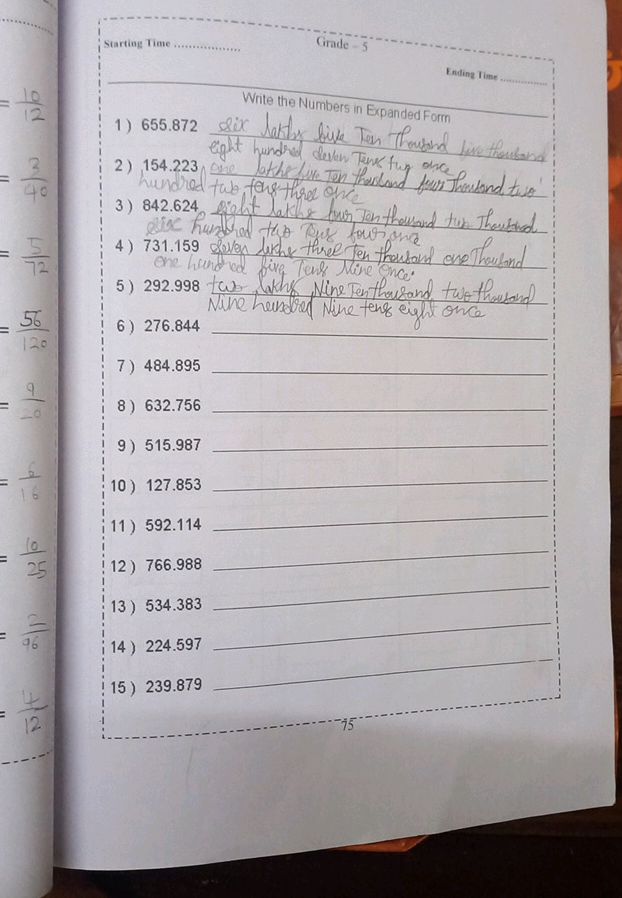 Starting Time ..................
Grade - 5
Ending Time ..............
Write the Numbers in Expanded Form
1 ) 655.872 six lakhs five Ten Thousand five thousand
eight hundred seven Tens two once
2 ) 154.223 one lakhs five Ten thousand four Thousand two
hundred two tens three once
3 ) 842.624 eight lakhs four Ten thousand two Thousand
six hundred two Tens four once
4 ) 731.159 seven lakhs three Ten Thousand one Thousand
one hundred five Tens Nine once.
5 ) 292.998 two lakhs Nine Ten thousand two thousand
Nine hundred Nine tens eight once
6 ) 276.844
7 ) 484.895
8 ) 632.756
9 ) 515.987
10 ) 127.853
11 ) 592.114
12 ) 766.988
13 ) 534.383
14 ) 224.597
15 ) 239.879
75
= 10/12
= 3/40
= 5/72
= 56/120
= 9/20
= 6/16
= 10/25
= 2/96
= 4/12